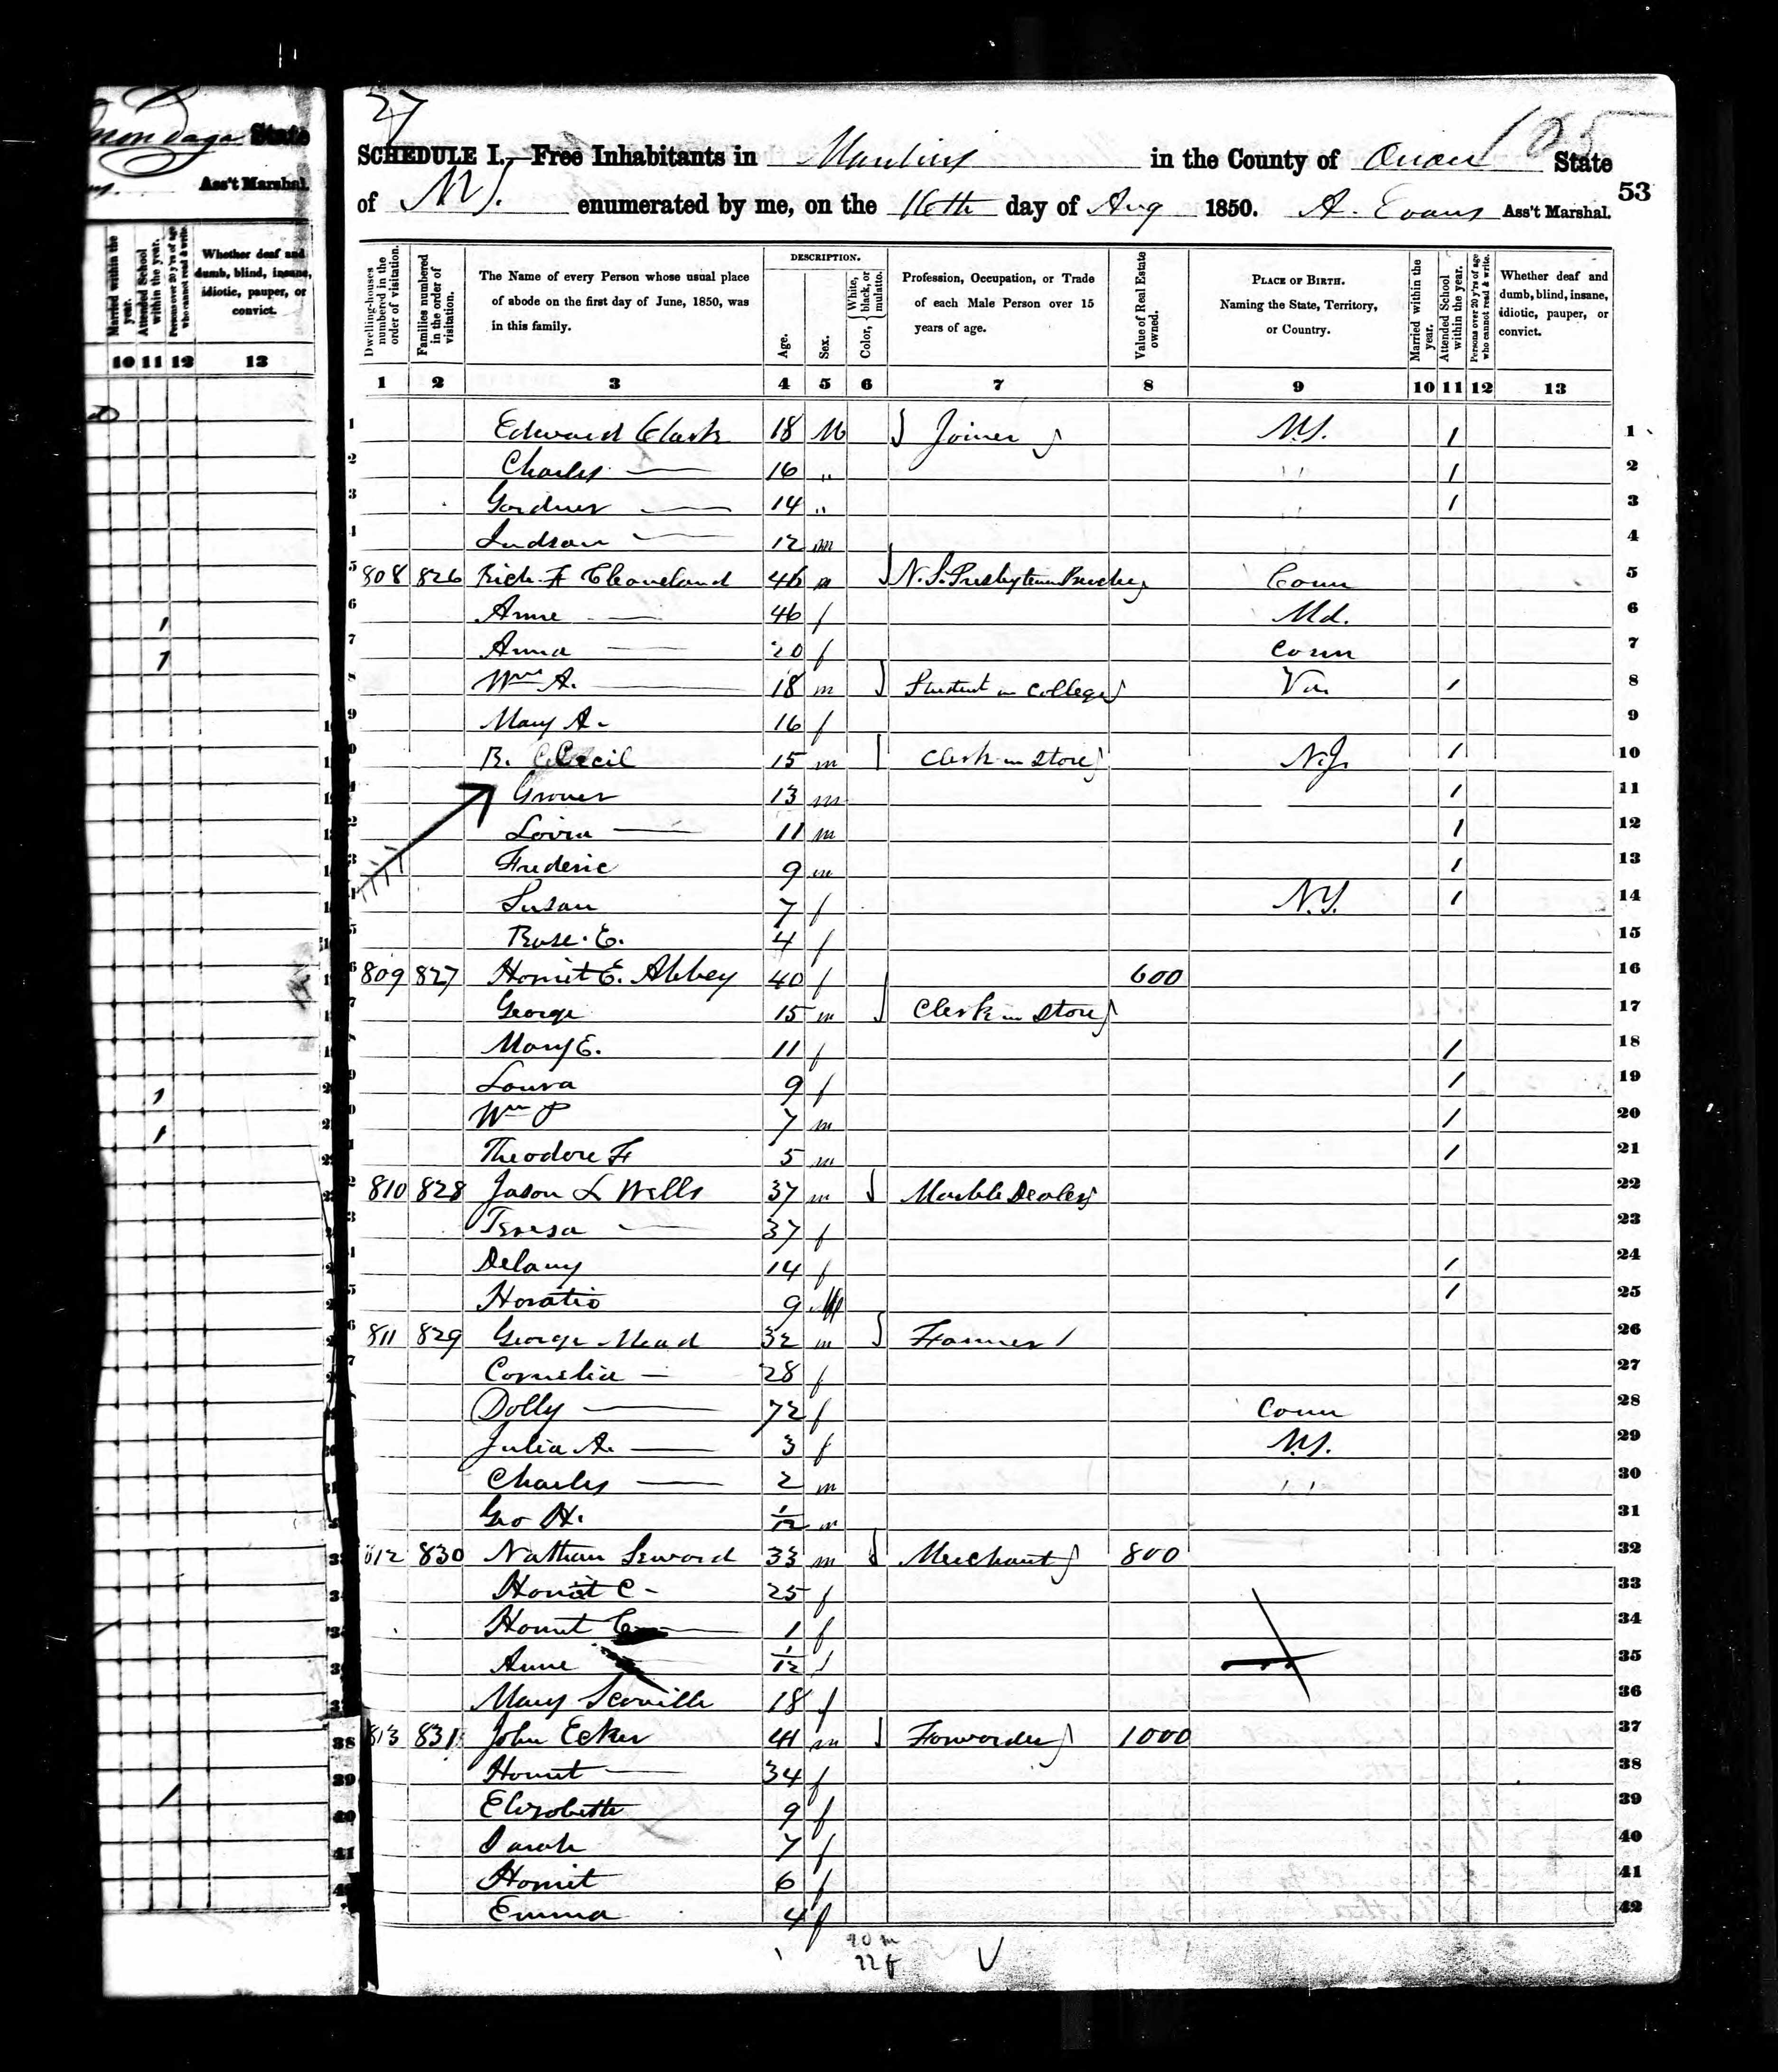 27
105
SCHEDULE I.—Free Inhabitants in Manlius in the County of Onon State
of N.Y. enumerated by me, on the 16th day of Aug 1850. A. Evans Ass't Marshal.
53
Onondaga State
Ass't Marshal.
Married within the year.
Attended School within the year.
Persons over 20 y'rs of age who cannot read & write.
Whether deaf and dumb, blind, insane, idiotic, pauper, or convict.
10 11 12 13
Dwelling-houses numbered in the order of visitation.
Families numbered in the order of visitation.
The Name of every Person whose usual place of abode on the first day of June, 1850, was in this family.
DESCRIPTION.
Age.
Sex.
Color, { White, black, or mulatto.
Profession, Occupation, or Trade of each Male Person over 15 years of age.
Value of Real Estate owned.
PLACE OF BIRTH. Naming the State, Territory, or Country.
Married within the year.
Attended School within the year.
Persons over 20 y'rs of age who cannot read & write.
Whether deaf and dumb, blind, insane, idiotic, pauper, or convict.
1 2 3 4 5 6 7 8 9 10 11 12 13
1 Edward Clark 18 M Joiner N.Y. 1 1
2 Charles — 16 " " 1 2
3 Gardner — 14 " " 1 3
4 Judson — 12 m 4
5 808 826 Rich. F Cleaveland 46 m N.S. Presbyterian Conn 5
6 Anne — 46 f Md. 6
7 Anna — 20 f Conn 7
8 Wm A. — 18 m Student in College Va 1 8
9 Mary A. 16 f 9
R. Cecil 15 m Clerk in Store N.J. 1 10
Grover 13 m — 1 11
Lovira — 11 m 1 12
Frederic 9 m 1 13
Susan 7 f N.Y. 1 14
Rose. E. 4 f 15
809 827 Harriet E. Abbey 40 f 600 16
George 15 m Clerk in Store 17
Mary E. 11 f 1 18
Loura 9 f 1 19
Wm P 7 m 1 20
Theodore F 5 m 1 21
810 828 Jason L Wells 37 m Marble Dealer 22
Teresa — 37 f 23
Delany 14 f 1 24
Horatio 9 M 1 25
811 829 George Mead 32 m Farmer 26
Cornelia — 28 f 27
Dolly — 72 f Conn 28
Julia A. — 3 f N.Y. 29
Charles — 2 m " 30
Geo H. 1/12 m 31
812 830 Nathan Seward 33 m Merchant 800 32
Harriet C - 25 f 33
Harriet — 1 f 34
Anne 1/12 f 35
Mary Scoville 18 f 36
813 831 John Ecker 41 m Forwarder 1000 37
Harriet — 34 f 38
Elizabeth 9 f 39
Sarah 7 f 40
Harriet 6 f 41
Emma 4 f 42
20 m
22 f